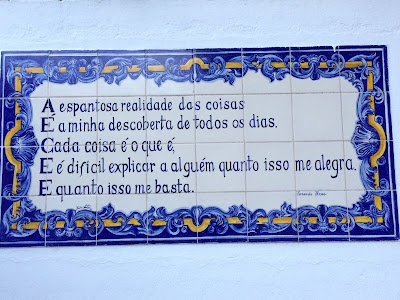 A espantosa realidade das coisas
É a minha descoberta de todos os dias.
Cada coisa é o que é,
E é difícil explicar a alguém quanto isso me alegra.
E quanto isso me basta.